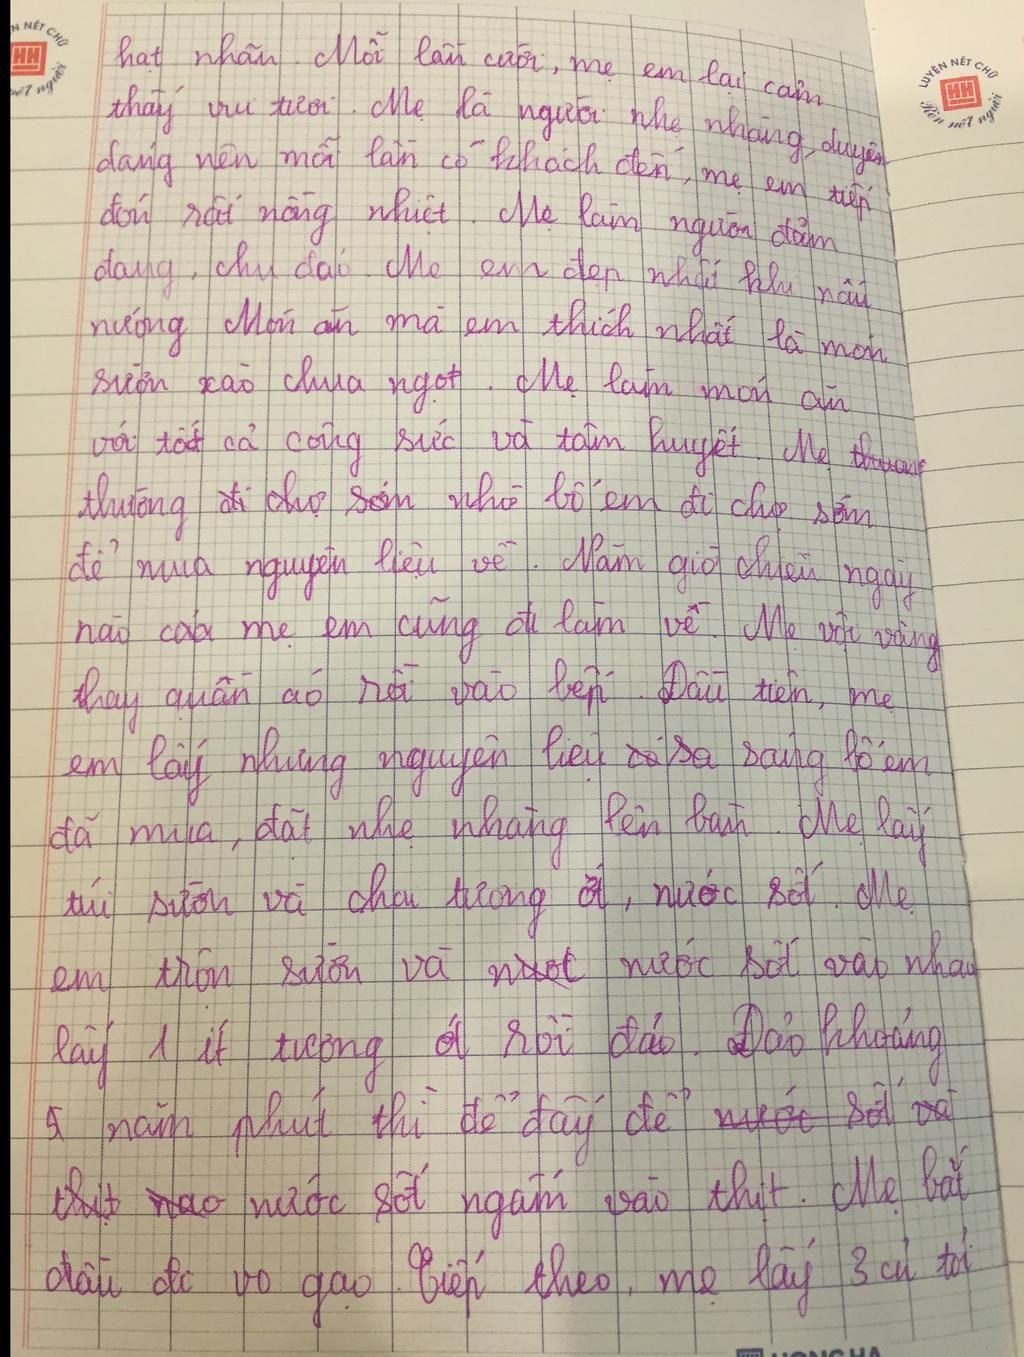 LUYỆN NÉT CHỮ
HH
Rèn nết người
N NÉT CHỮ
HH
nết người
hạt nhãn. Mỗi lần cười, mẹ em lại cảm
thấy vui tươi. Mẹ là người nhẹ nhàng, duyên
dáng nên mỗi lần có khách đến, mẹ em tiếp
đón rất nồng nhiệt. Mẹ làm người đảm
dang, chu đáo. Mẹ em đẹp nhất khi nấu
nướng. Món ăn mà em thích nhất là món
sườn xào chua ngọt. Mẹ làm món ăn
với tất cả công sức và tâm huyết. Mẹ
thường đi chợ sớm nhờ bố em đi chợ sớm
để mua nguyên liệu về. Năm giờ chiều ngày
nào mẹ em cũng đi làm về. Mẹ vội vàng
thay quần áo rồi vào bếp. Đầu tiên, mẹ
em lấy nhưng nguyên liệu sa sáng bố em
đã mua, đặt nhẹ nhàng lên bàn. Mẹ lấy
túi sườn và chai tương ớt, nước sốt. Mẹ
em trộn sườn và nước sốt vào nhau
lấy 1 ít tương ớt rồi đảo. Đảo khoảng
5 năm phút thì để đấy để nước sốt và
thịt nước sốt ngấm vào thịt. Mẹ bắt
đầu đc vo gạo. Tiếp theo, mẹ lấy 3 củ tỏi
HONG HA